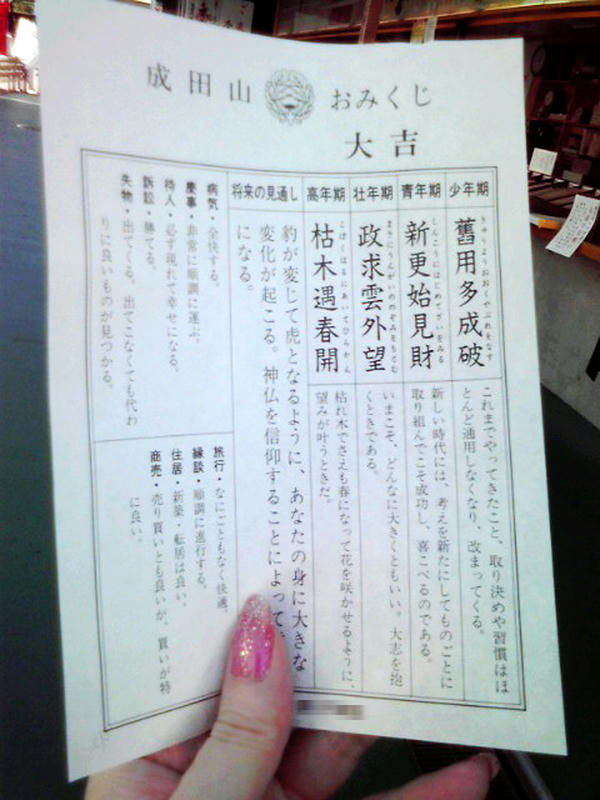 成田山
おみくじ
大吉
少年期
舊用多成破
きゅうようおおくやぶれをなす
これまでやってきたこと、取り決めや習慣はほ
とんど通用しなくなり、改まってくる。
青年期
新更始見財
しんこうにはじめてざいをみる
新しい時代には、考えを新たにしてものごとに
取り組んでこそ成功し、喜こべるのである。
壮年期
政求雲外望
まさにうんがいののぞみをもとむ
いまこそ、どんなに大きくともいい。大志を抱
くときである。
高年期
枯木遇春開
こぼくはるにあいてひらかん
枯れ木でさえも春になって花を咲かせるように、
望みが叶うときだ。
将来の見通し
豹が変じて虎となるように、あなたの身に大きな
変化が起こる。神仏を信仰することによって
になる。
病気・全快する。
慶事・非常に順調に運ぶ。
待人・必ず現れて幸せになる。
訴訟・勝てる。
失物・出てくる。出てこなくても代わ
りに良いものが見つかる。
旅行・なにごともなく快適。
縁談・順調に進行する。
住居・新築・転居は良い。
商売・売り買いとも良いが、買いが特
に良い。